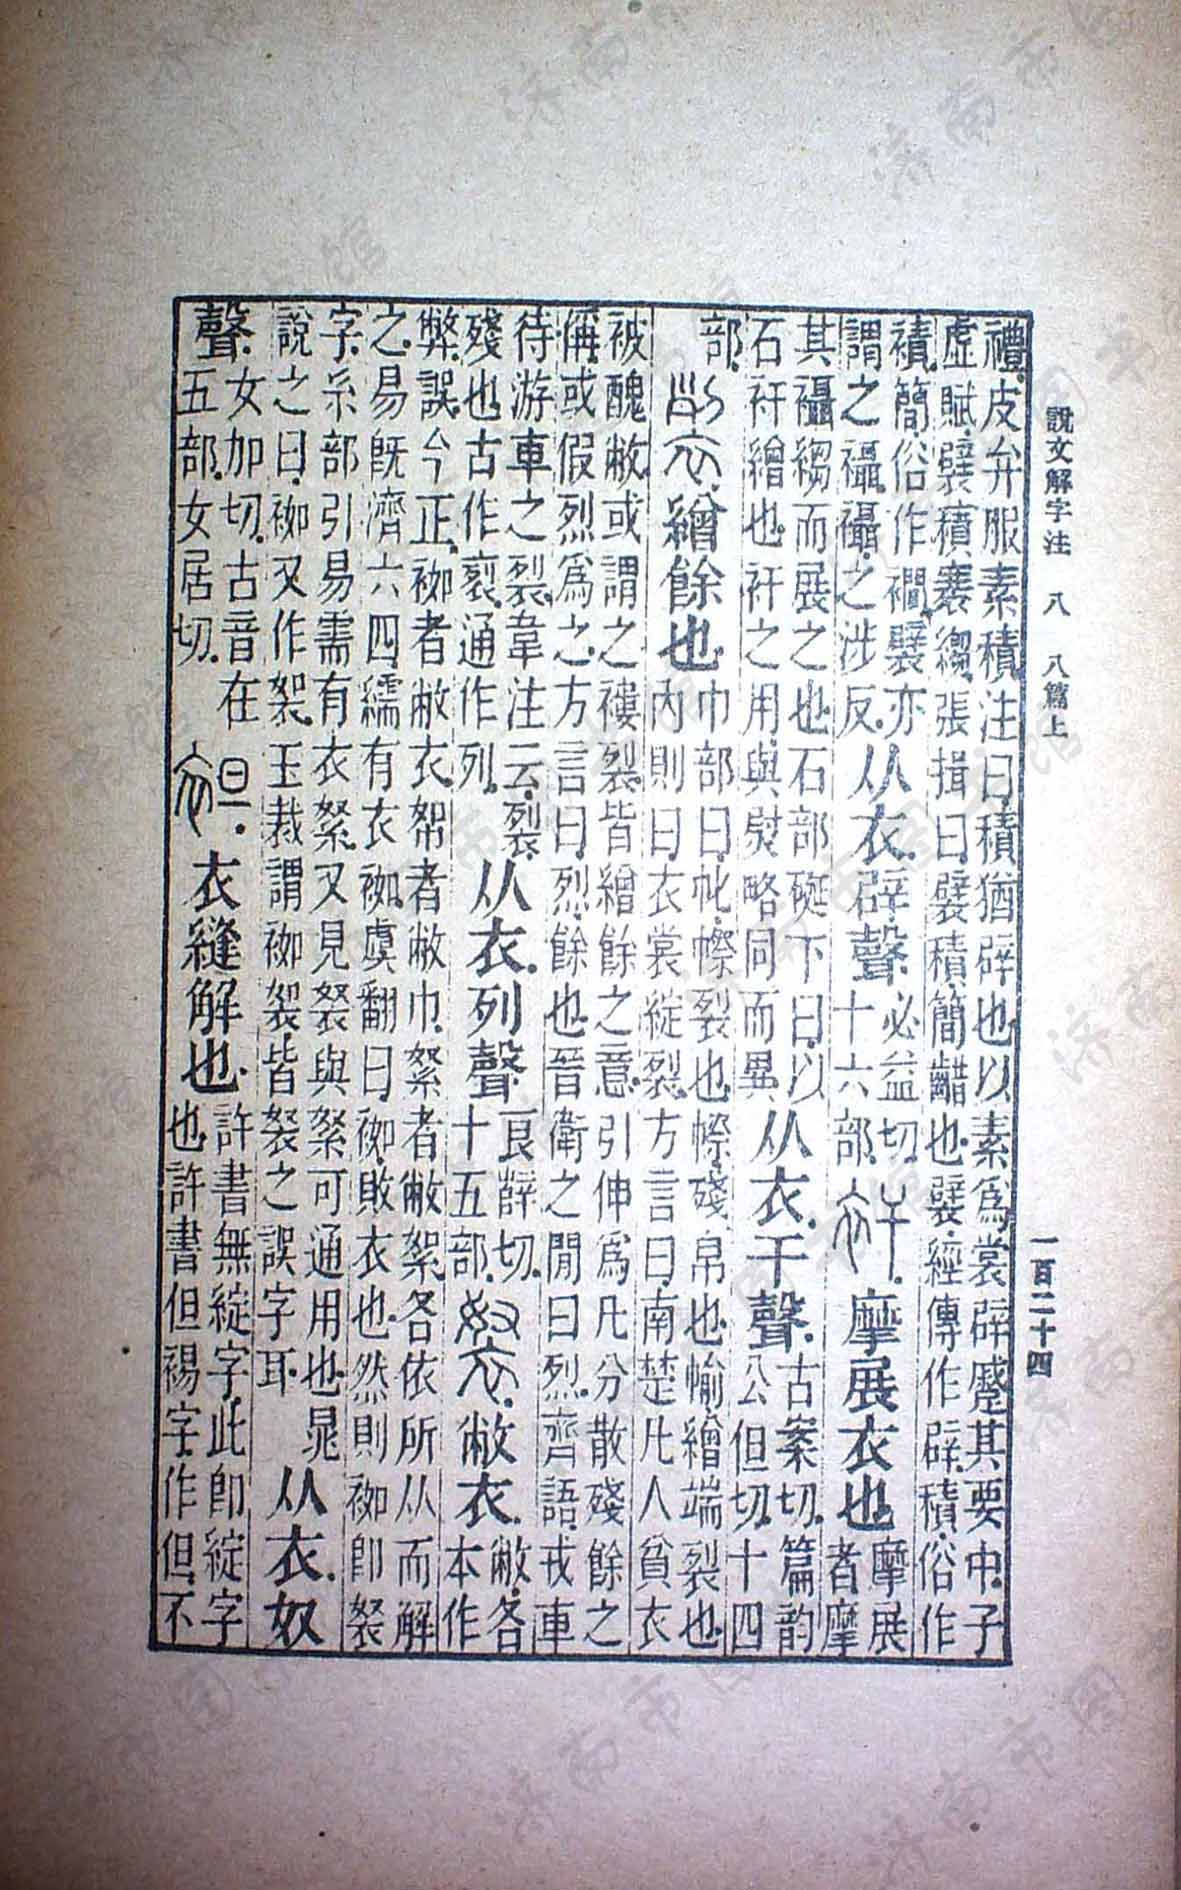 說文解字注 八 八篇上 一百二十四
禮皮弁服素積注曰積猶辟也以素爲裳辟蹙其要中子
虛賦襞積褰縐張揖曰襞積簡齰也襞經傳作辟積俗作
襀簡俗作襉襞亦
謂之襵襵之涉反
从衣辟聲
必益切
十六部
摩展衣也
摩展
者摩
其襵縐而展之也石部硟下曰以
石衦繒也衦之用與熨略同而異
从衣干聲
古案切篇韵
公但切十四
部
繒餘也
巾部曰㡜裂也㡜殘帛也㡏繒端裂也
內則曰衣裳綻裂方言曰南楚凡人貧衣
被醜敝或謂之褸裂皆繒餘之意引伸爲凡分散殘餘之
偁或假烈爲之方言曰烈餘也晉衛之閒曰烈齊語戎車
待游車之裂韋注云裂
殘也古作裂通作列
从衣列聲
良辥切
十五部
敝衣
敝各
本作
弊誤今正袽者敝衣帤者敝巾絮者敝絮各依所从而解
之易旣濟六四繻有衣袽虞翻曰袽敗衣也然則袽卽袈
字糸部引易需有衣絮又見袈與絮可通用也晁
說之曰袽又作絮玉裁謂袽袈皆袈之誤字耳
从衣奴
聲
女加切古音在
五部女居切
衣縫解也
許書無綻字此卽綻字
也許書但裼字作但不